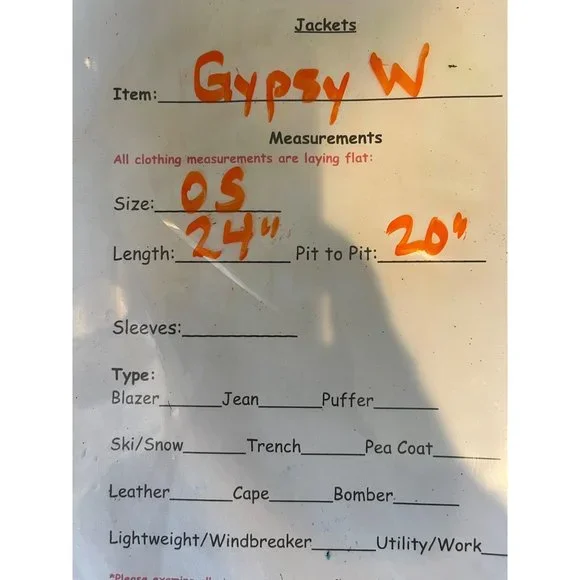 Jackets
Item: Gypsy W
Measurements
All clothing measurements are laying flat:
Size: OS
Length: 24" Pit to Pit: 20"
Sleeves:
Type:
Blazer Jean Puffer
Ski/Snow Trench Pea Coat
Leather Cape Bomber
Lightweight/Windbreaker Utility/Work
*Please